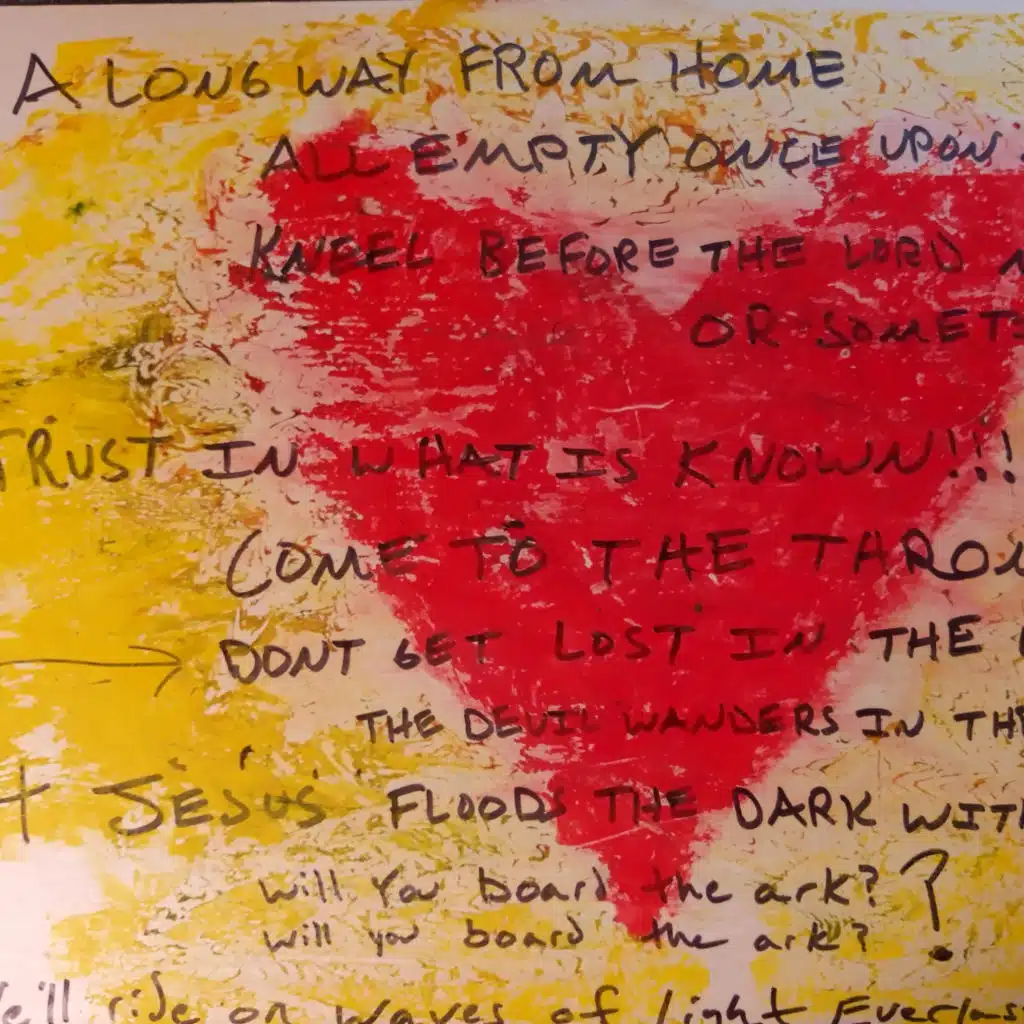 A LONG WAY FROM HOME
ALL EMPTY ONCE UPON
KNEEL BEFORE THE LORD
OR
TRUST IN WHAT IS KNOWN!!!
COME TO THE
DONT GET LOST IN THE
THE DEVIL WANDERS IN
JESUS FLOODS THE DARK
will You board the ark?
will you board the ark?
?
ride on waves of light